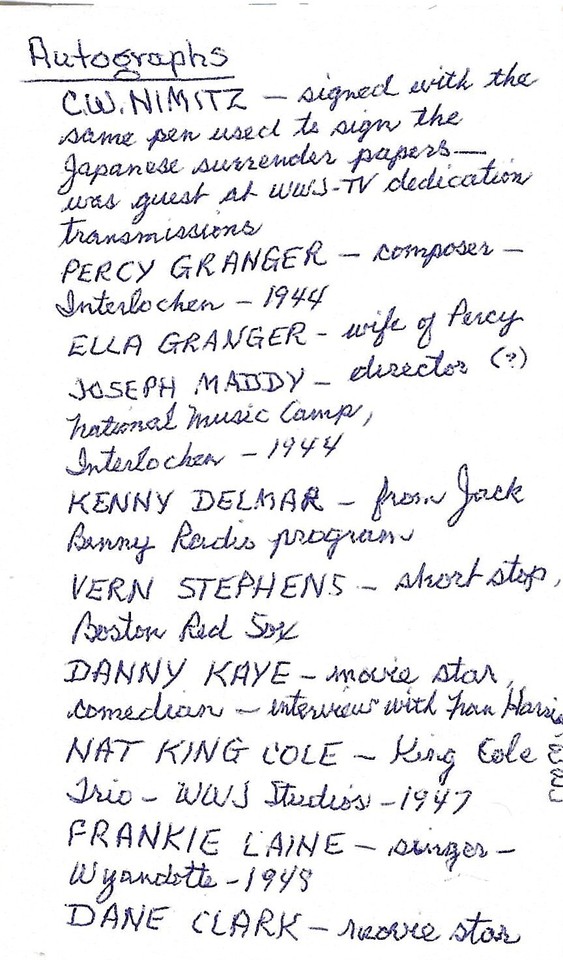 Autographs
C.W. NIMITZ — signed with the
same pen used to sign the
Japanese surrender papers —
was guest at WWJ-TV dedication
transmissions
PERCY GRANGER — composer —
Interlochen — 1944
ELLA GRANGER - wife of Percy
JOSEPH MADDY — director (?)
National Music Camp,
Interlochen — 1944
KENNY DELMAR — from Jack
Benny Radio program
VERN STEPHENS — short stop,
Boston Red Sox
DANNY KAYE — movie star,
comedian — interview with Fran Harris
NAT KING COLE — King Cole
Trio — WWJ Studios — 1947
FRANKIE LAINE — singer —
Wyandotte — 1948
DANE CLARK — movie star